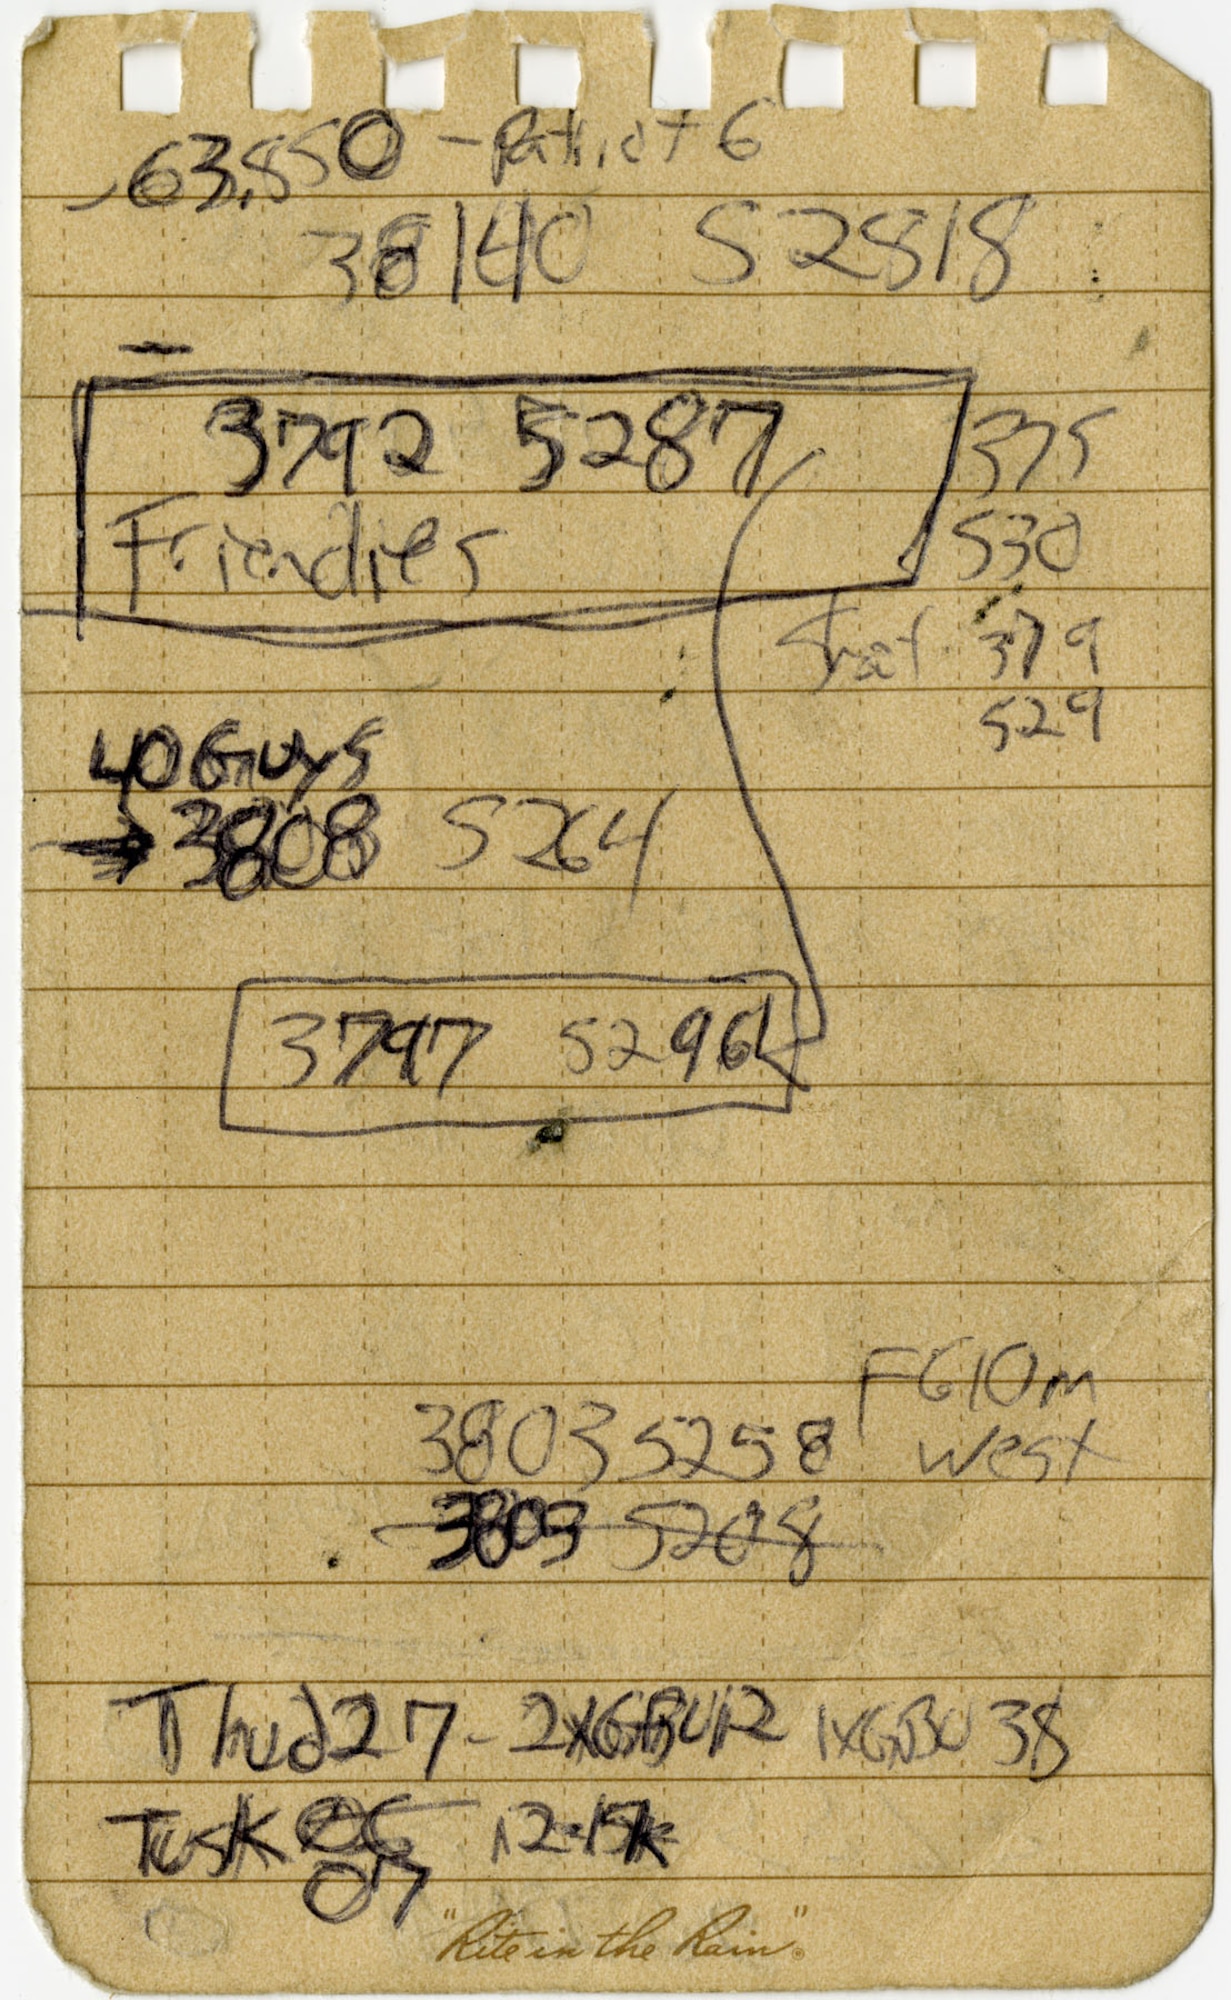 63,850 - Patriot 6
38140 52818
3792 5287
Friendlies
375
530
379
529
40 Guys
→ 3808 5264
3797 5296
F610m
west
3803 5258
3803 5208
Thud27 - 2xGBU12 1xGBU 38
Tusk 06 12-15k
07
"Rite in the Rain"®